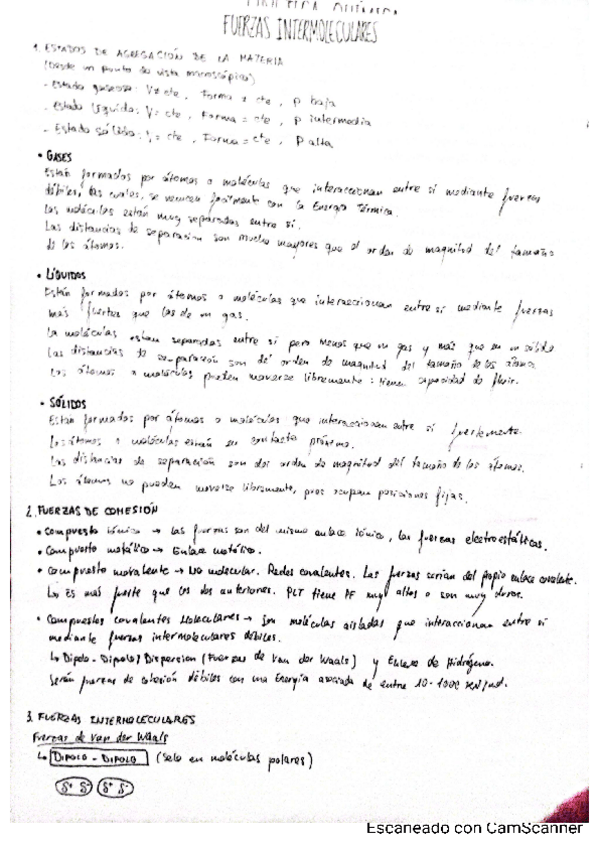 FUERZAS INTERMOLECULARES
1. ESTADOS DE AGREGACIÓN DE LA MATERIA
(Desde un punto de vista microscópico)
- Estado gaseoso: V ≠ cte, Forma ≠ cte, ρ baja
- Estado líquido: V = cte, Forma ≠ cte, ρ intermedia
- Estado sólido: V = cte, Forma = cte, ρ alta
• GASES
Están formados por átomos o moléculas que interaccionan entre sí mediante fuerzas
débiles, las cuales, se vencen fácilmente con la Energía Térmica.
Las moléculas están muy separadas entre sí.
Las distancias de separación son mucho mayores que el orden de magnitud del tamaño
de los átomos.
• LÍQUIDOS
Están formados por átomos o moléculas que interaccionan entre sí mediante fuerzas
más fuertes que las de un gas.
La moléculas están separadas entre sí pero menos que un gas y más que en un sólido
Las distancias de separación son del orden de magnitud del tamaño de los átomos.
Los átomos o moléculas pueden moverse libremente: tienen capacidad de fluir.
• SÓLIDOS
Están formados por átomos o moléculas que interaccionan entre sí fuertemente.
Los átomos o moléculas están en contacto próximo.
Las distancias de separación son del orden de magnitud del tamaño de los átomos.
Los átomos no pueden moverse libremente, pues ocupan posiciones fijas.
2. FUERZAS DE COHESIÓN
• Compuesto iónico → Las fuerzas son del mismo enlace iónico, las fuerzas electroestáticas.
• Compuesto metálico → Enlace metálico.
• Compuesto covalente → No molecular. Redes covalentes. Las fuerzas serían del propio enlace covalente.
↳ Es más fuerte que los dos anteriores. tiene PF muy altos o son muy duros.
• Compuestos covalentes Moleculares → Son moléculas aisladas que interaccionan entre sí
mediante fuerzas intermoleculares débiles.
↳ Dipolo-Dipolo/Dispersión (Fuerzas de Van der Waals) y Enlace de Hidrógeno.
Serán fuerzas de cohesión débiles con una Energía asociada de entre
3. FUERZAS INTERMOLECULARES
Fuerzas de Van der Waals
↳ DIPOLO - DIPOLO (Solo en moléculas polares)
δ⁺ δ⁻ δ⁺ δ⁻
Escaneado con CamScanner